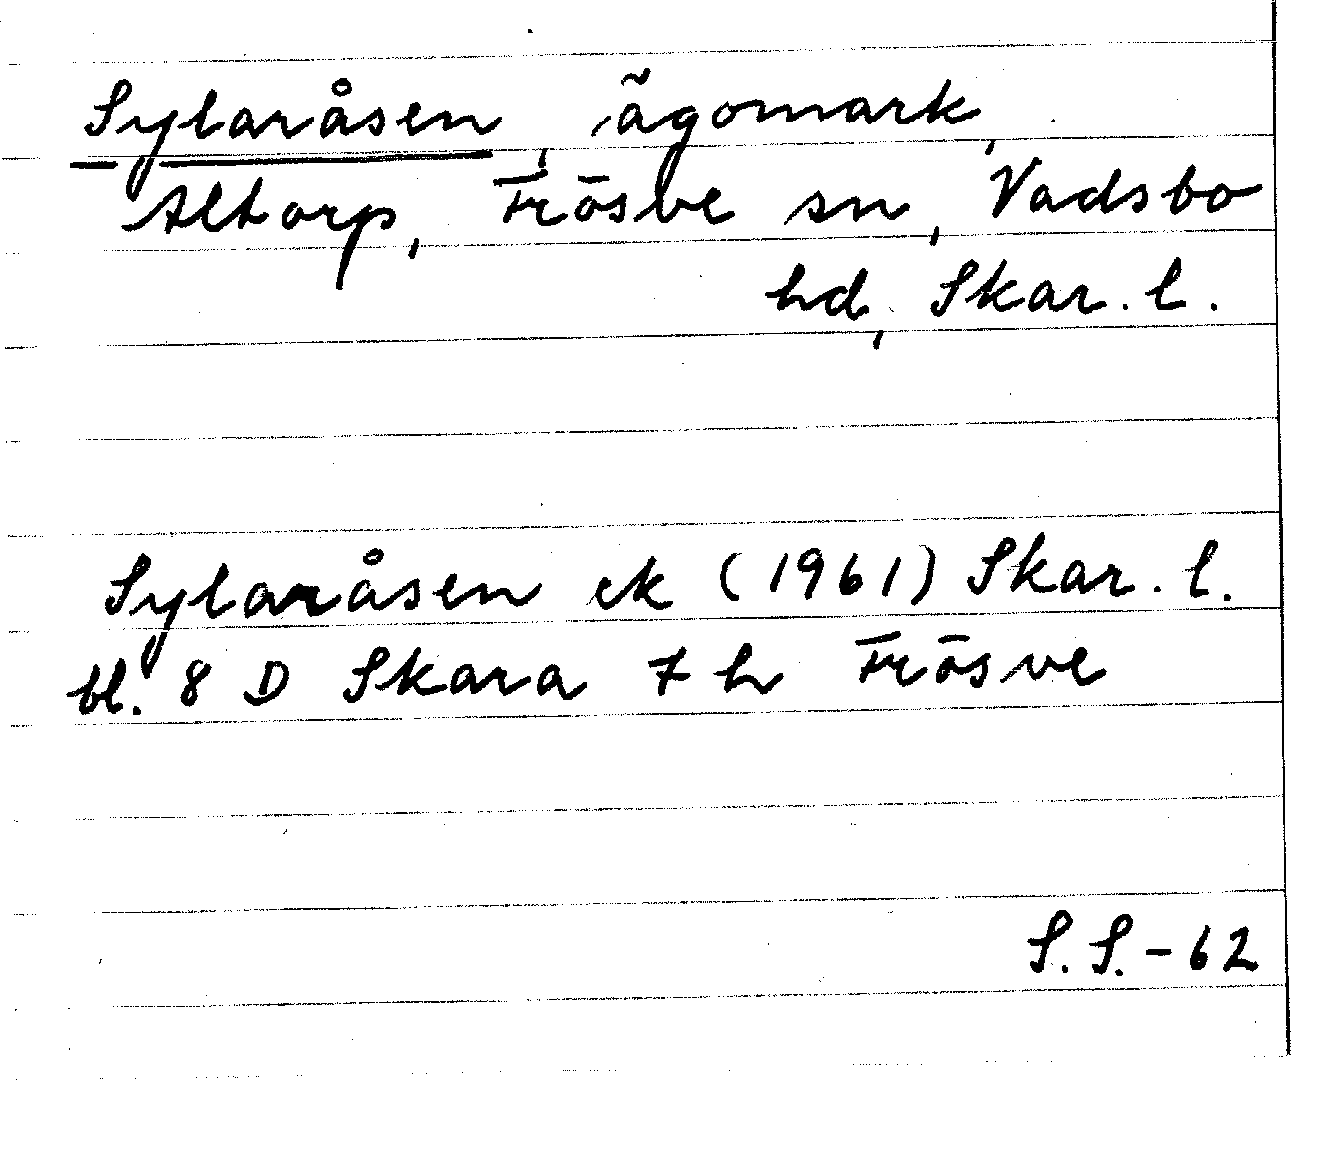 Sylaråsen, ägomark,
Altorp, Frösve sn, Vadsbo
hd, Skar. l.
Sylaråsen ek (1961) Skar. l.
bl. 8 D Skara 7 h Frösve
S. S. - 62